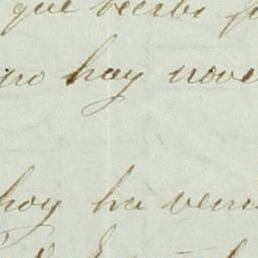 que recibi
no hay nove
hoy ha veni